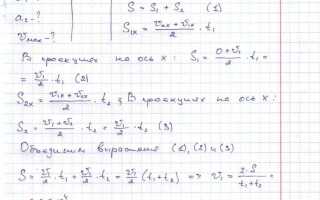 a₂ - ?
v_max - ?
S = S₁ + S₂ (1)
S₁ₓ = (v₀ₓ + v₁ₓ)/2 · t₁
В проекциях на ось x: S₁ = (0 + v₁)/2 · t₁ =
= v₁/2 · t₁ (2)
S₂ₓ = (v₁ₓ + v₂ₓ)/2 · t₂; В проекциях на ось x:
S₂ = (v₁ + v₂)/2 · t₂ = v₁/2 · t₂ (3)
Объединим выражения (1), (2) и (3)
S = v₁/2 · t₁ + v₁/2 · t₂ = v₁/2 (t₁ + t₂) => v₁ = 2·S/(t₁ + t₂) =